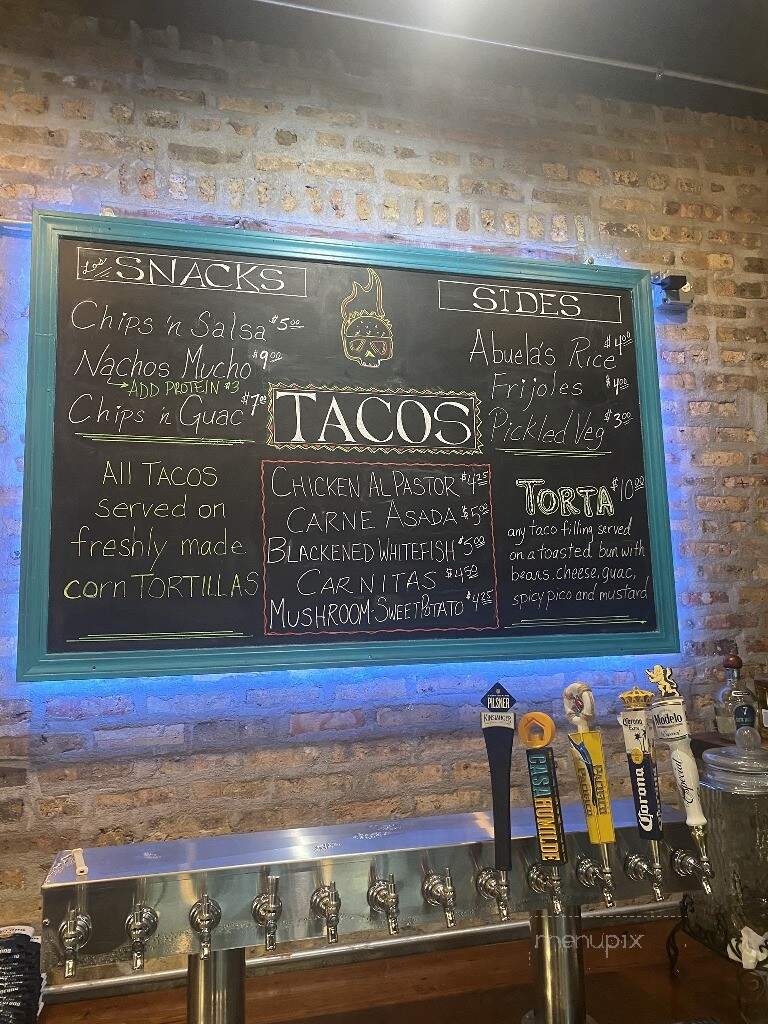 Los SNACKS
Chips 'n Salsa $5.00
Nachos Mucho $9.00
ADD PROTEIN $3
Chips 'n Guac $7.00
All TACOS
served on
freshly made
corn TORTILLAS
TACOS
CHICKEN AL PASTOR $4.25
CARNE ASADA $5.00
BLACKENED WHITEFISH $5.00
CARNITAS $4.50
MUSHROOM-SWEET POTATO $4.25
SIDES
Abuela's Rice $4.00
Frijoles $4.00
Pickled Veg $3.00
TORTA $10.00
any taco filling served
on a toasted bun with
beans, cheese, guac,
spicy pico and mustard
PILSNER
CASA HUMILDE
PACIFICO
Corona
Extra
Corona
Modelo
Especial
7
menupix